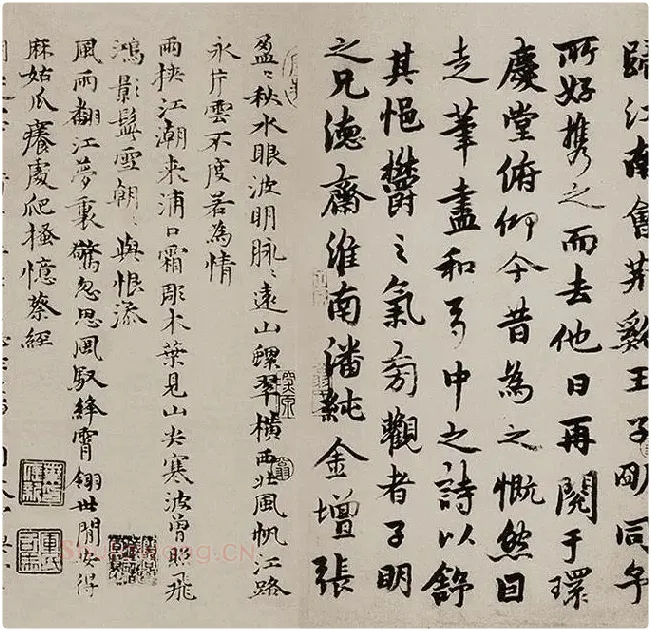 歸江南會荆谿王子明同年
所好携之而去他日再閱于環
慶堂俯仰今昔為之慨然因
走筆盡和弓中之詩以舒
其悒鬱之氣旁觀者子明
之兄德齋淮南潘純金壇張
盈〻秋水眼波明脉〻遠山螺翠橫西北風帆江路
永片雲不度若為情
雨挾江潮來浦口霜彫木葉見山尖寒波曾照飛
鴻影鬢雪朝〻與恨添
風雨翻江夢裏驚忽思風馭絳霄翎世間安得
麻姑爪癢處爬搔憶蔡經